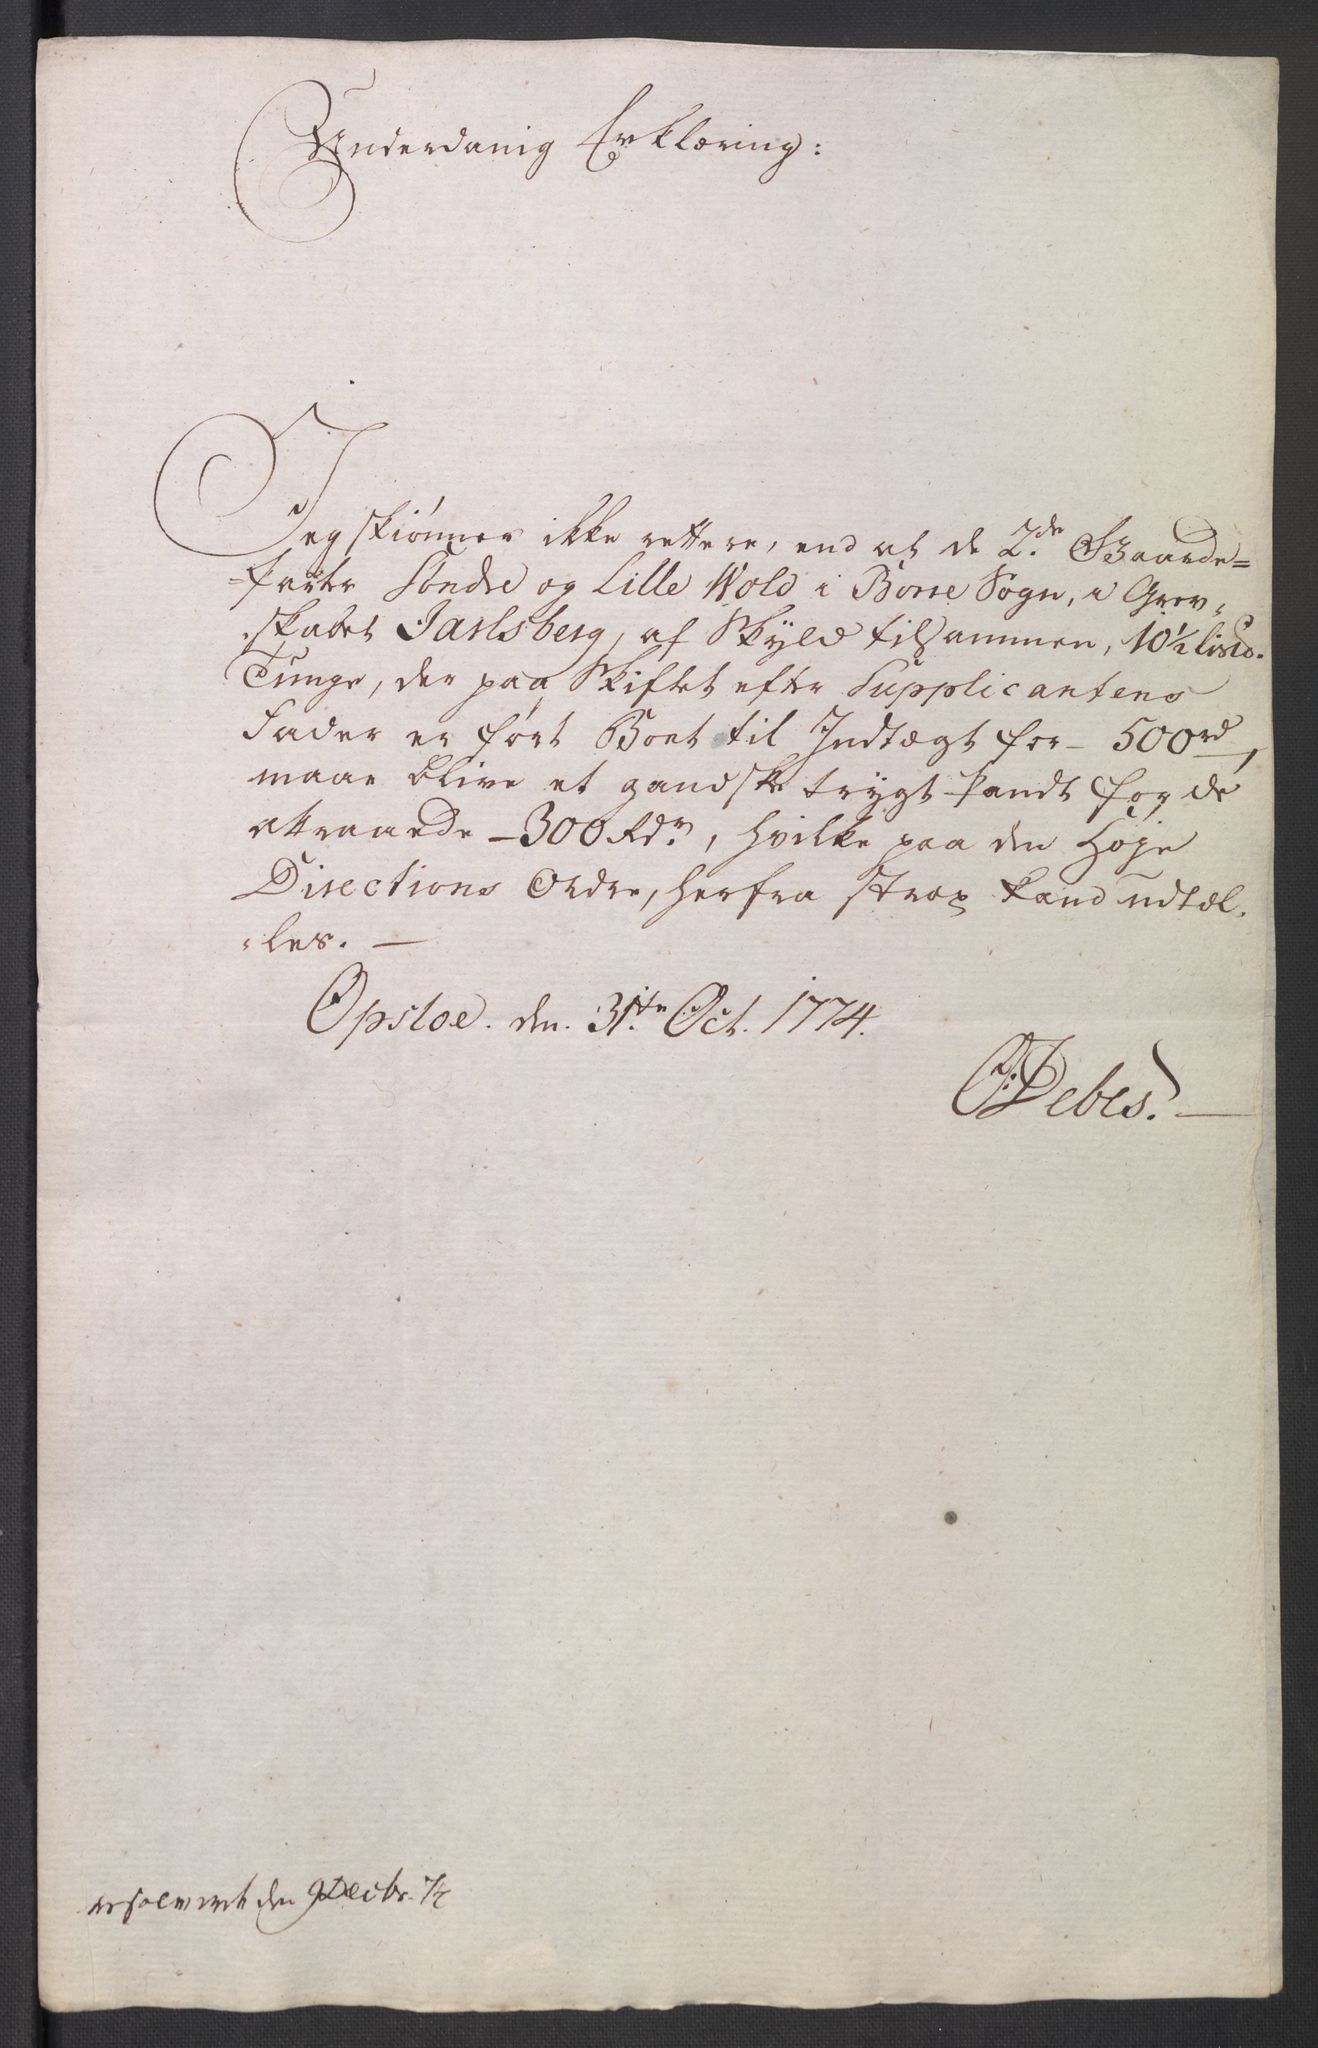 Underdanig Erklæring:
Jeg skiønner ikke rettere, end at de 2.de Gaarde=
=parter Söndre og Lille Wold i Borre Sogn, i Grev-
-skabet Jarlsberg, af Skyld tilsammen, 10½ lispd.
Tunge, der paa Skiftet efter Supplicantens
Fader er ført Boet til Indtægt for - 500rd,
maae blive et gandske trygt Pandt for de
attraaede - 300 Rdr., hvilke paa den Høje
Directions Ordre, herfra strax kand udtæl-
-les. —
Opsloe. den. 31.te Oct. 1774.
Debes. —
resolveret den 9 Decbr. 74